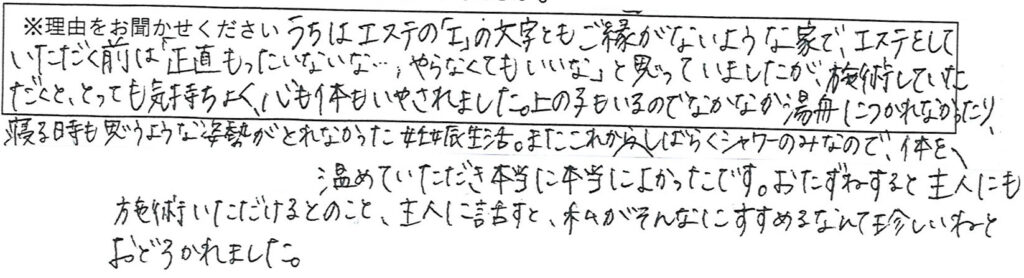 ※理由をお聞かせください うちはエステの「エ」の文字ともご縁がないような家で、エステをして
いただく前は「正直もったいないな…、やらなくてもいいな」と思っていましたが、施術していた
だくと、とっても気持ちよく、心も体もいやされました。上の子もいるのでなかなか湯舟につかれなかったり、
寝る時も思うような姿勢がとれなかった妊娠生活。またこれからしばらくシャワーのみなので、体を、
温めていただき本当に本当によかったです。おたずねすると主人にも
施術いただけるとのこと、主人に話すと、私がそんなにすすめるなんて珍しいねと
おどろかれました。